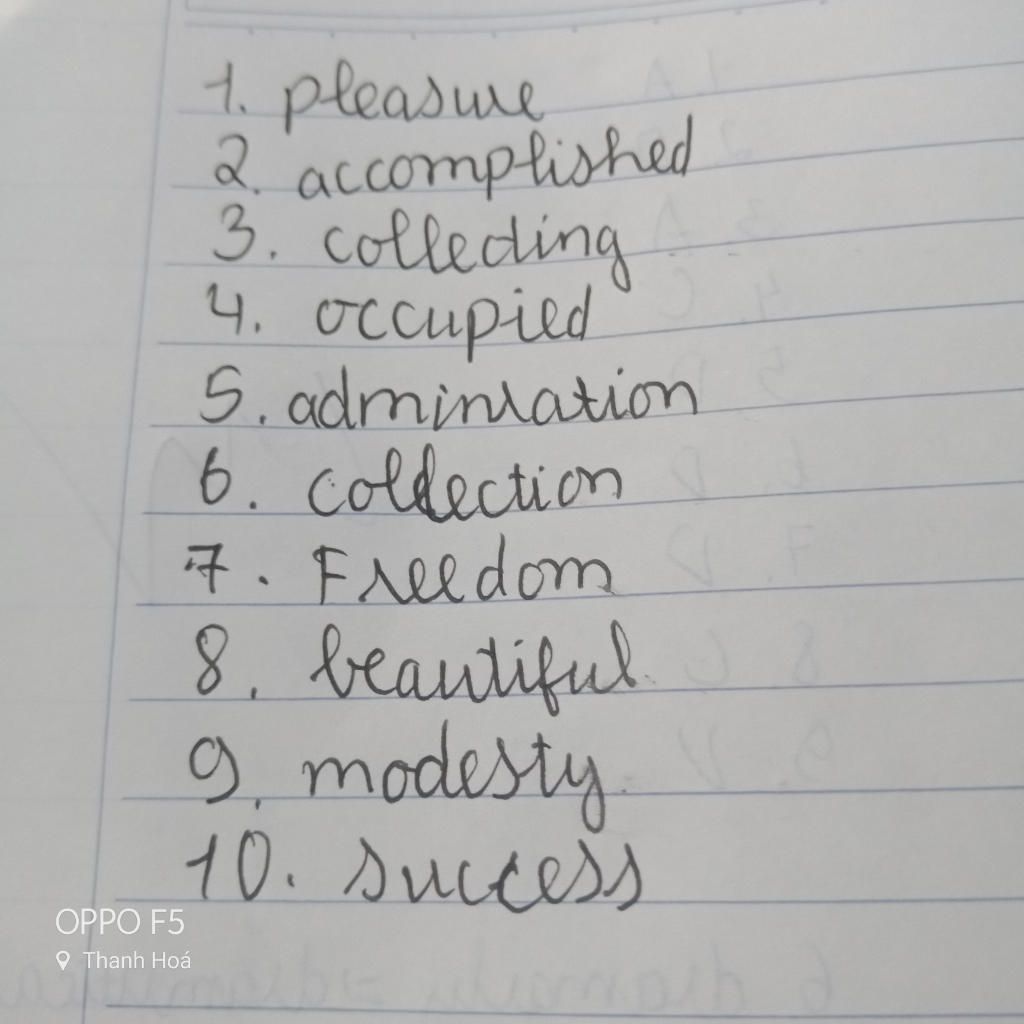 1. pleasure
2. accomplished
3. collecting
4. occupied
5. adminration
6. collection
7. Freedom
8. beautiful.
9. modesty.
10. success
OPPO F5
Thanh Hoá